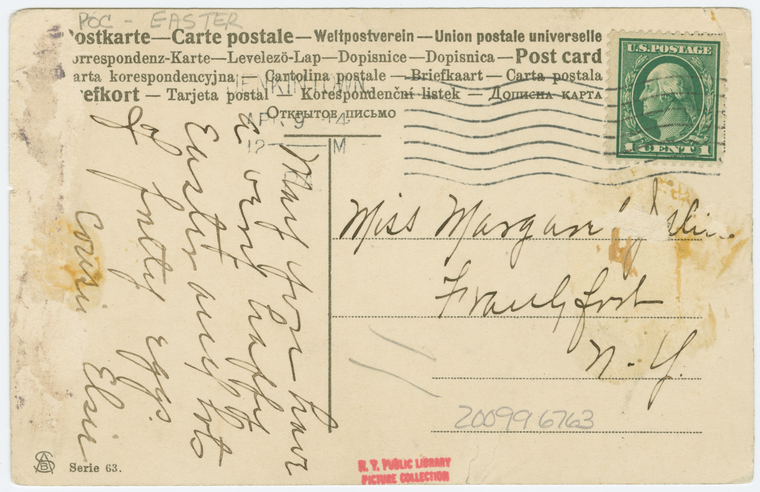 POC - EASTER
Postkarte—Carte postale—Weltpostverein—Union postale universelle
orrespondenz-Karte—Levelezö-Lap—Dopisnice—Dopisnica—Post card
arta korespondencyjna Cartolina postale—Briefkaart—Carta postala
refkort—Tarjeta postal—Korespondenční listek—Дописна карта
Открытое письмо
JENKINTOWN
APR 9 14
12 M
U.S. POSTAGE
1 CENT 1
May you have
a very happy
Easter and lots
of
eggs.
Cousin Elsie
Miss Margaret
Frankfort
N.Y.
200996763
Serie 63.
N. Y. PUBLIC LIBRARY
PICTURE COLLECTION